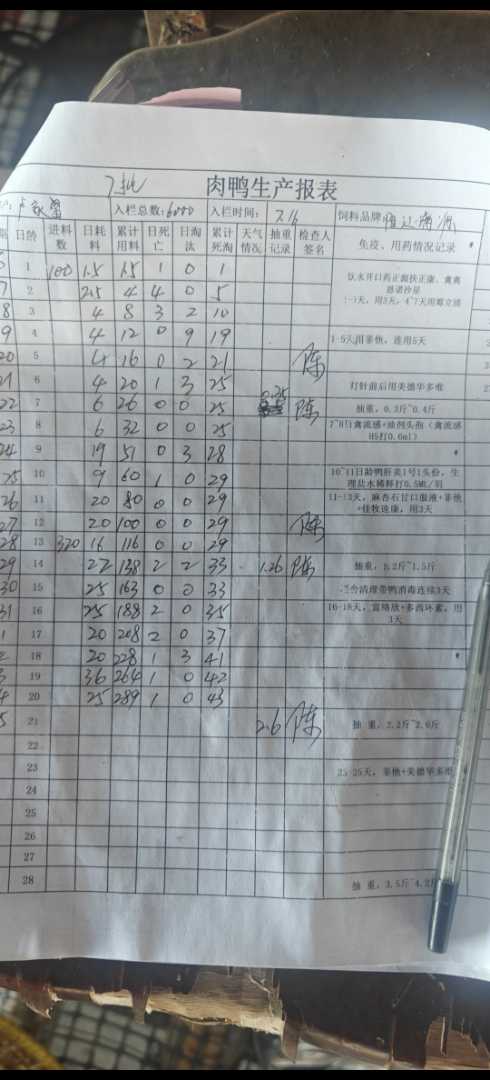 7批 肉鸭生产报表
入栏总数:6000 入栏时间: 7.16 饲料品牌
日龄 进料数 日耗料 累计用料 日死亡 日淘汰 累计死淘 天气情况 抽重记录 检查人签名 免疫、用药情况记录
1 100 1.5 1.5 1 0 1
饮水开口药正源扶正康、禽禽恩诺沙星
7 2 2.5 4 4 0 5
8 3 4 8 3 2 10
9 4 4 12 0 9 19 1-5天用菲他,连用5天
20 5 4 16 0 2 21 陈
21 6 4 20 1 3 25 打针前后用美德华多维
22 7 6 26 0 0 25 0.35 陈 抽重,0.3斤~0.4斤
23 8 6 32 0 0 25 7~8日禽流感+油剂头孢(禽流感H5打0.6ml)
24 9 19 51 0 3 28
25 10 9 60 1 0 29 10~11日龄鸭肝炎1号1头份,生理盐水稀释打0.5ML/羽
26 11 20 80 0 0 29 11-13天,麻杏石甘口服液+菲他+佳牧速康,用3天
27 12 20 100 0 0 29 陈
28 13 320 16 116 0 0 29
29 14 22 138 2 2 33 1.26 陈 抽重,1.2斤~1.5斤
30 15 25 163 0 0 33 清理带鸭消毒连续3天
31 16 25 188 2 0 35 16-18天,富络欣+多西环素,用3天
1 17 20 208 2 0 37
2 18 20 228 1 3 41
3 19 36 264 1 0 42
4 20 25 289 1 0 43
5 21 2.6 陈 抽重,2.2斤~2.6斤
22
23 25天,菲他+美德华多维
24
25
26
27
28 抽重,3.5斤~4.2斤